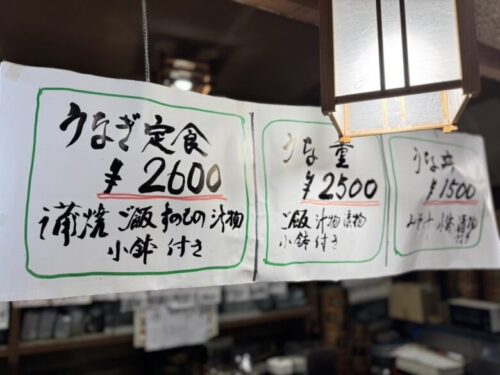 うなぎ定食
¥2600
蒲焼 ご飯 すのもの 汁物
小鉢 付き
うな重
¥2500
ご飯 汁物 漬物
小鉢 付き
うな丼
¥1500
小鉢 漬物
付き